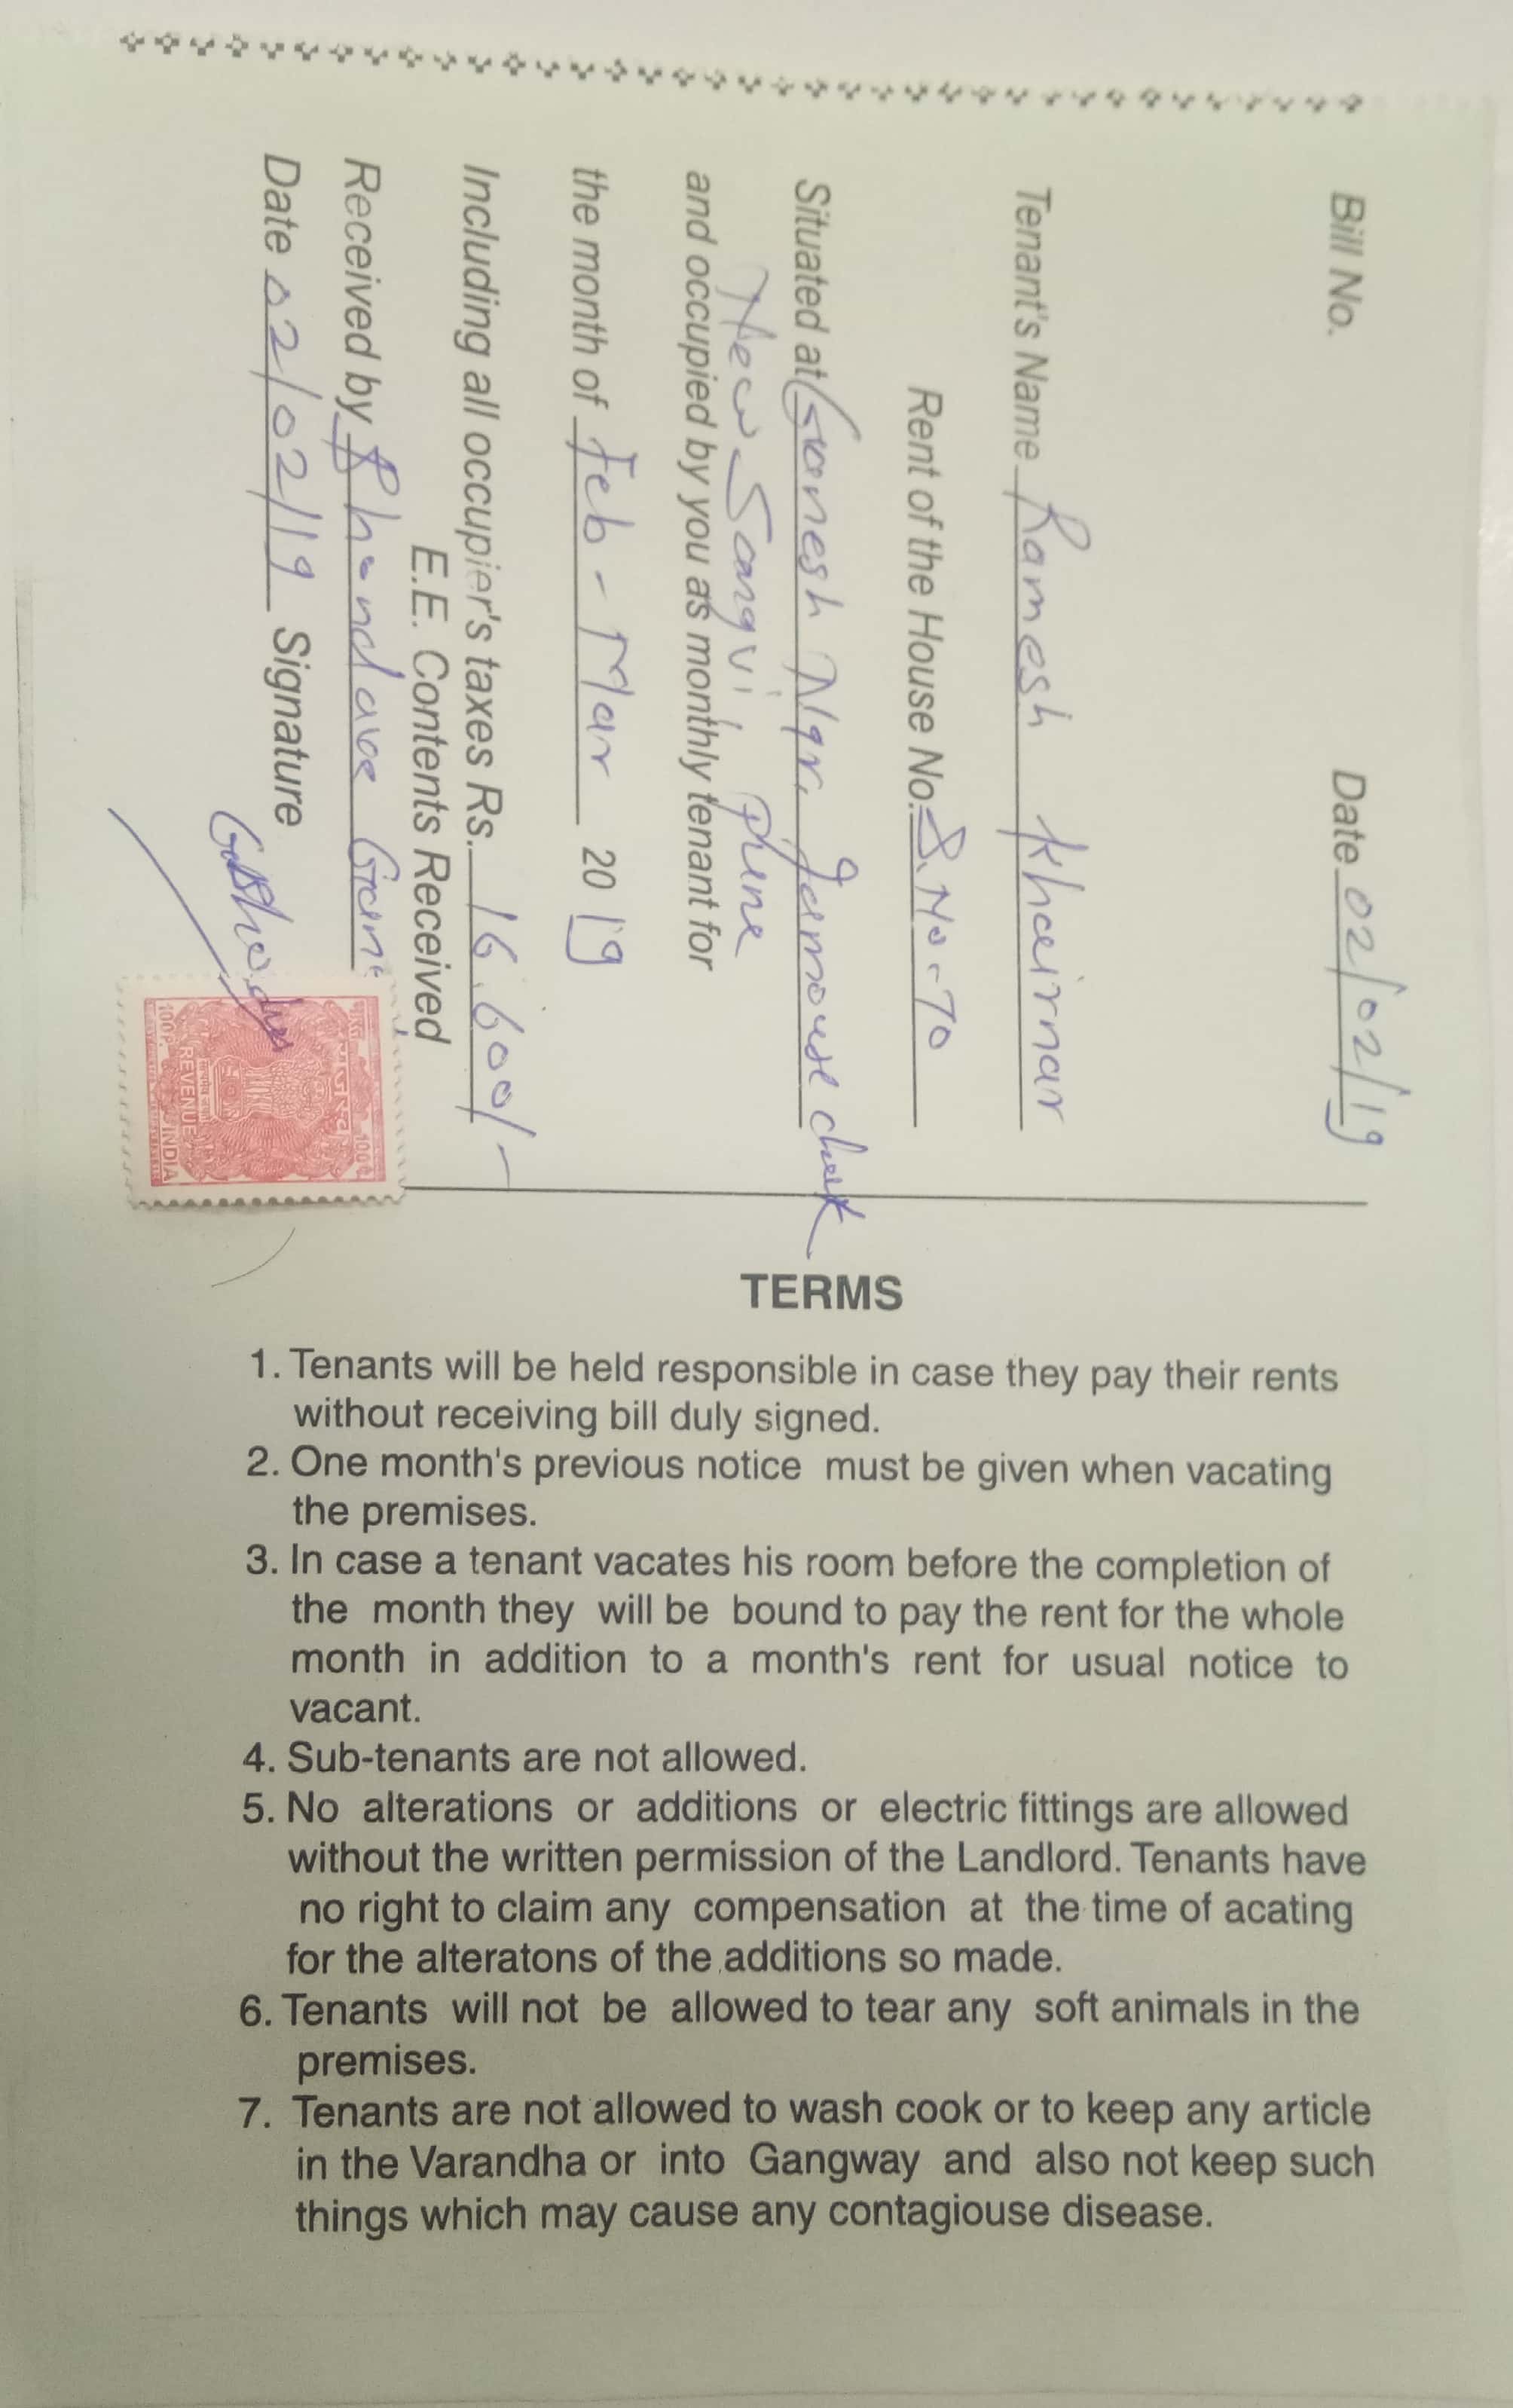 Bill No. Date 02/02/19
Tenant's Name Ramesh Khairnar
Rent of the House No. S.No-70
Situated at Ganesh Ngr,
New Sangvi, Pune
and occupied by you as monthly tenant for
the month of Feb - Mar 2019
Including all occupier's taxes Rs. 16,600/-
E.E. Contents Received
Received by
Date 02/02/19 Signature
100P.
REVENUE
INDIA
TERMS
1. Tenants will be held responsible in case they pay their rents
without receiving bill duly signed.
2. One month's previous notice must be given when vacating
the premises.
3. In case a tenant vacates his room before the completion of
the month they will be bound to pay the rent for the whole
month in addition to a month's rent for usual notice to
vacant.
4. Sub-tenants are not allowed.
5. No alterations or additions or electric fittings are allowed
without the written permission of the Landlord. Tenants have
no right to claim any compensation at the time of acating
for the alteratons of the additions so made.
6. Tenants will not be allowed to tear any soft animals in the
premises.
7. Tenants are not allowed to wash cook or to keep any article
in the Varandha or into Gangway and also not keep such
things which may cause any contagiouse disease.